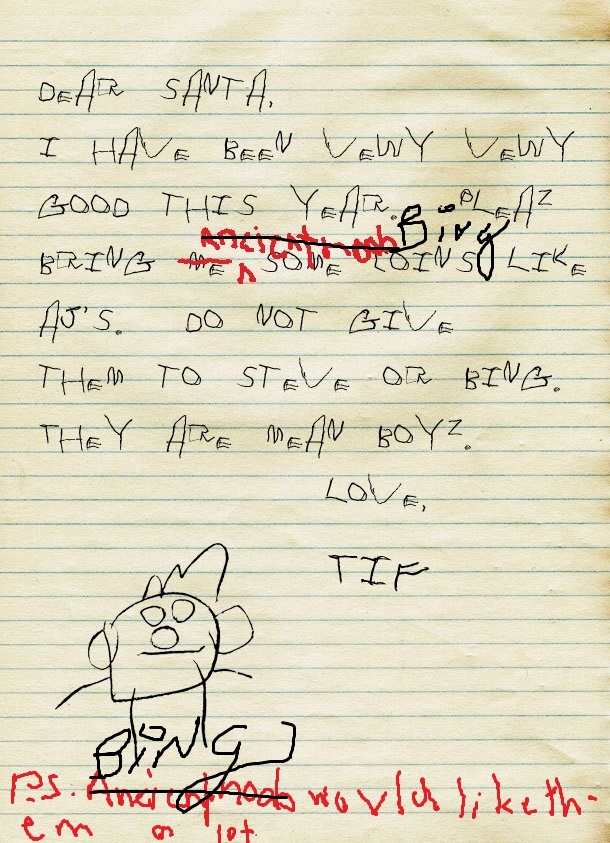 DEAR SANTA,
I HAVE BEEN VEWY VEWY
GOOD THIS YEAR. PLEAZ
Ancientnoob Bing
BRING ME SOME COINS LIKE
AJ'S. DO NOT GIVE
THEM TO STEVE OR BING.
THEY ARE MEAN BOYZ.
LOVE,
TIF
BiNG
P.S. Ancientnoob would like th-
em a lot